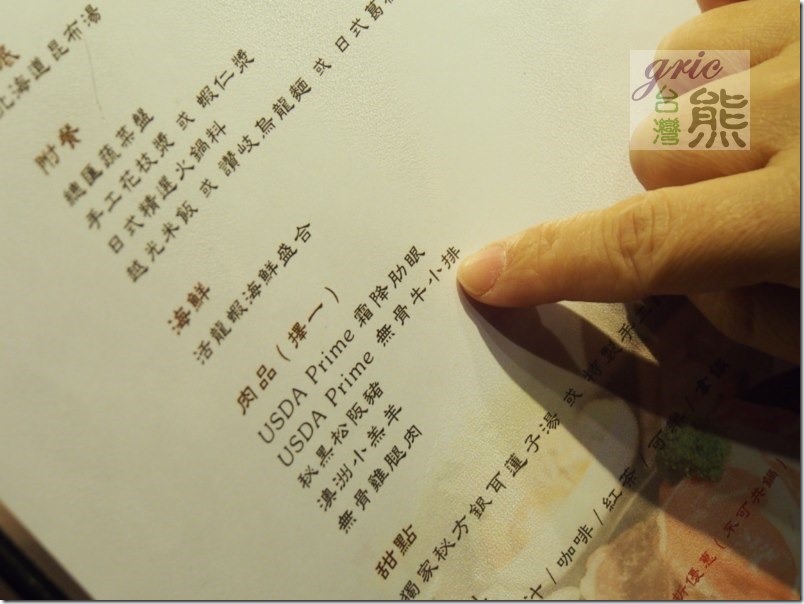 北海道昆布湯
附餐
總匯蔬菜盤
手工花枝漿 或 蝦仁漿
日式精選火鍋料
越光米飯 或 讚岐烏龍麵 或 日式葛
海鮮
活龍蝦海鮮盛合
肉品（擇一）
USDA Prime 霜降肋眼
USDA Prime 無骨牛小排
秘黑松阪豬
澳洲小羔羊
無骨雞腿肉
甜點
獨家秘方銀耳蓮子湯 或 特製手工
汁 / 咖啡 / 紅茶 / 可樂 /
折優惠（不可共鍋）
gric
台灣熊